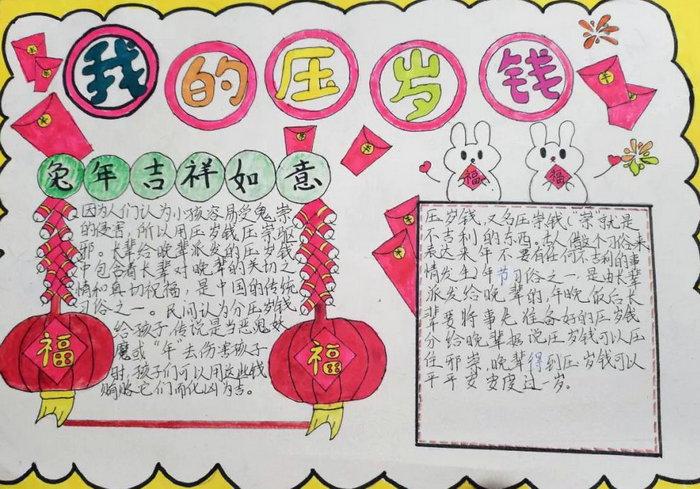 我的压岁钱
兔年吉祥如意
因为人们认为小孩容易受鬼祟
的侵害,所以用压岁钱压祟驱
邪。长辈给晚辈派发的压岁钱
中包含着长辈对晚辈的关切之
情和真切祝福,是中国的传统
习俗之一。民间认为分压岁钱
给孩子,传说是当恶鬼妖
魔或“年”去伤害孩子
时,孩子们可以用这些钱
贿赂它们而化凶为吉。
福
福
福
福
压岁钱,又名压祟钱(“祟”就是
不吉利的东西。古人做这个习俗来
表达来年不要有任何不吉利的事
情发生)年节习俗之一,是由长辈
派发给晚辈的,年晚饭后长
辈要将事先准备好的压岁钱
分给晚辈,据说压岁钱可以压
住邪祟,晚辈得到压岁钱可以
平平安安度过一岁。